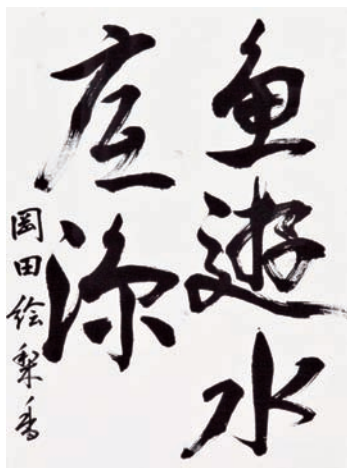 魚遊水
底涼
岡田絵梨香